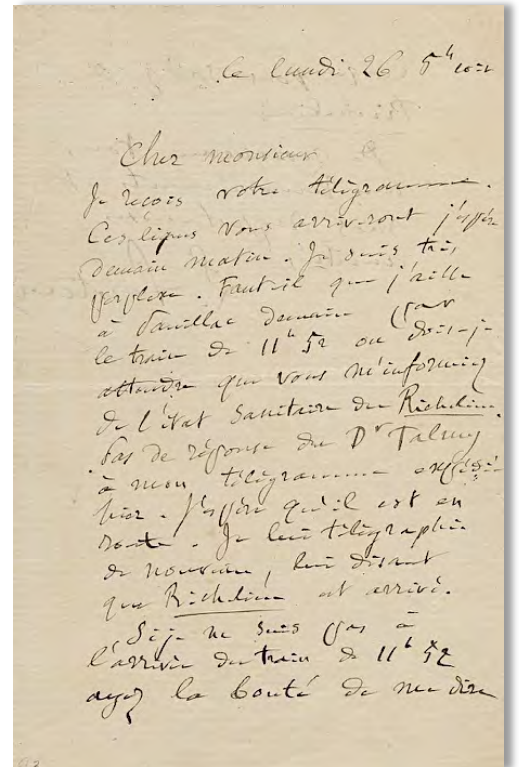 ce lundi 26 5h soir
Cher monsieur
Je reçois votre télégramme.
Ces lignes vous arriveront j'espère
demain matin. Je suis très
perplexe. Faut-il que j'aille
à Pauillac demain par
le train de 11h 52 ou dois-je
attendre que vous m'informiez
de l'état sanitaire du Richelieu.
Pas de réponse du Dr Talmy
à mon télégramme expédié
hier. J'espère qu'il est en
route. Je lui télégraphie
de nouveau, lui disant
que Richelieu est arrivé.
Si je ne suis pas à
l'arrivée du train de 11h 52
ayez la bonté de me dire